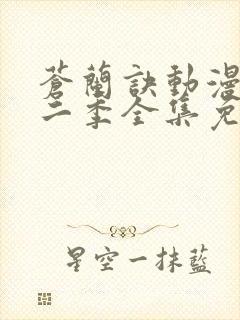 蒼蘭訣動漫
二季全集免
星空一抹藍